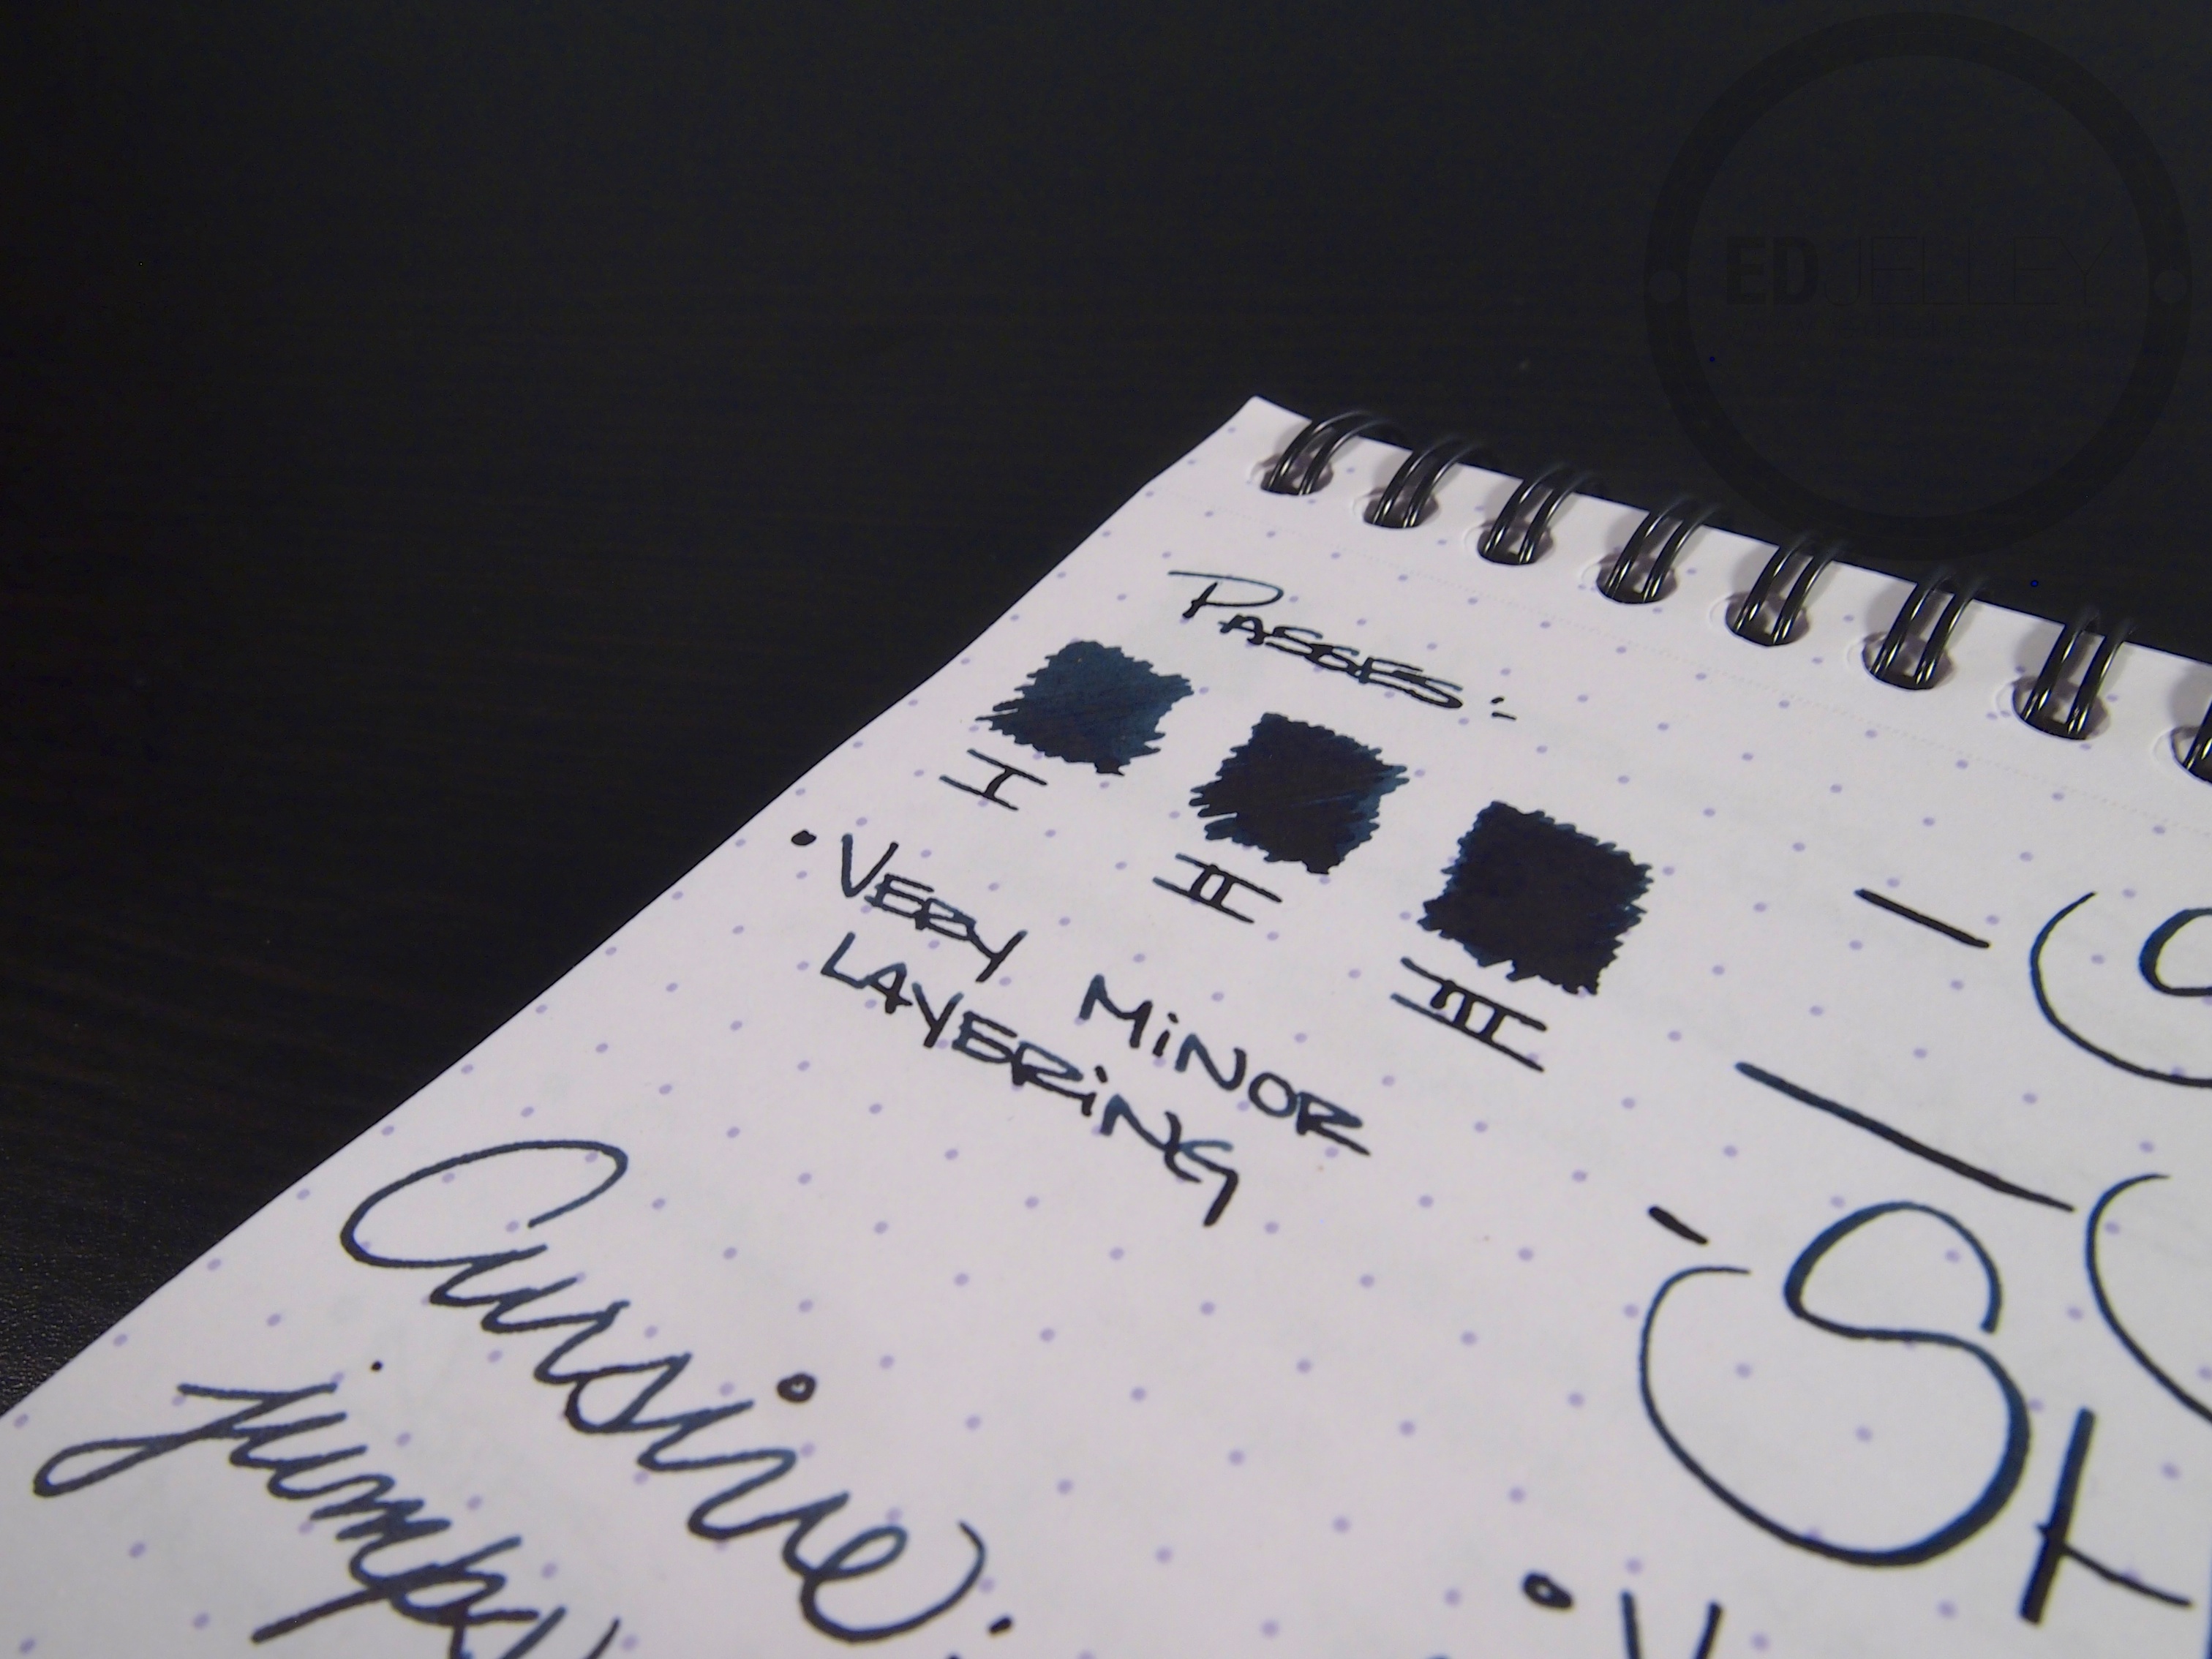 EDJELLEY
PASSES:
I II III
• VERY MINOR
LAYERING
Cursive
jumps